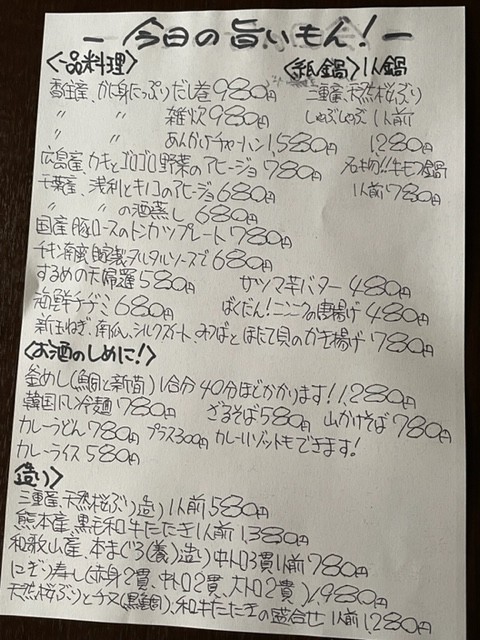 ー今日の旨いもん!ー
<一品料理>
香住産、かに身たっぷりだし巻 980円
〃 〃 雑炊 980円
〃 〃 あんかけチャーハン 1,580円
広島産、カキとゴロゴロ野菜のアヒージョ 780円
千葉産、浅利とキノコのアヒージョ 680円
〃 〃 の酒蒸し 680円
国産豚ロースのトンカツプレート 780円
チキン南蛮自家製タルタルソースで 680円
するめの天婦羅 580円 サツマ芋バター 480円
海鮮チヂミ 680円 ばくだん!ニンニクの唐揚げ 480円
新玉ねぎ、南瓜、シルクスイート、みつばとほたて貝のかき揚げ 780円
<紙鍋> 1人鍋
三重産、天然桜ぶり
しゃぶしゃぶ 1人前
1280円
名物!!牛モツ鍋
1人前 780円
<お酒のしめに!>
釜めし(鯛と新筍) 1合分 40分ほどかかります! 1,280円
韓国風冷麺 780円 ざるそば 580円 山かけそば 780円
カレーうどん 780円 プラス300円カレーリゾットもできます!
カレーライス 580円
<造り>
三重産、天然桜ぶり(造り) 1人前 580円
熊本産、黒毛和牛たたき 1人前 1,380円
和歌山産、本まぐろ(養)(造り)中トロ3貫 1人前 780円
にぎり寿し(赤身2貫、中トロ2貫、大トロ2貫) 1,980円
天然桜ぶりとチヌ(黒鯛)、和牛たたきの盛合せ 1人前 1280円